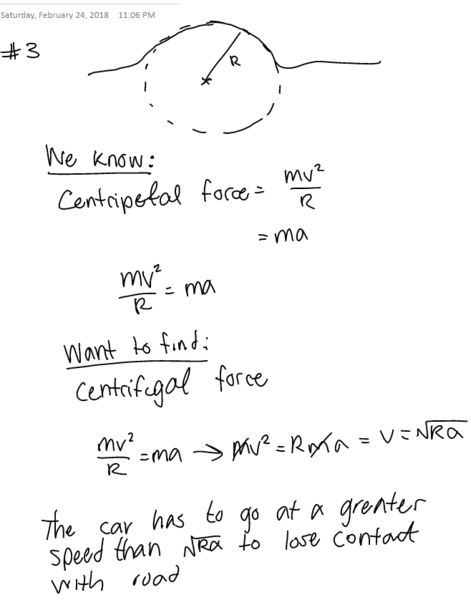 Saturday, February 24, 2018 11:06 PM
#3
R
We know:
Centripetal force = mv²/R
= ma
mv²/R = ma
Want to find:
Centrifugal force
mv²/R = ma → mv² = Rma = V = √Ra
The car has to go at a greater
speed than √Ra to lose contact
with road